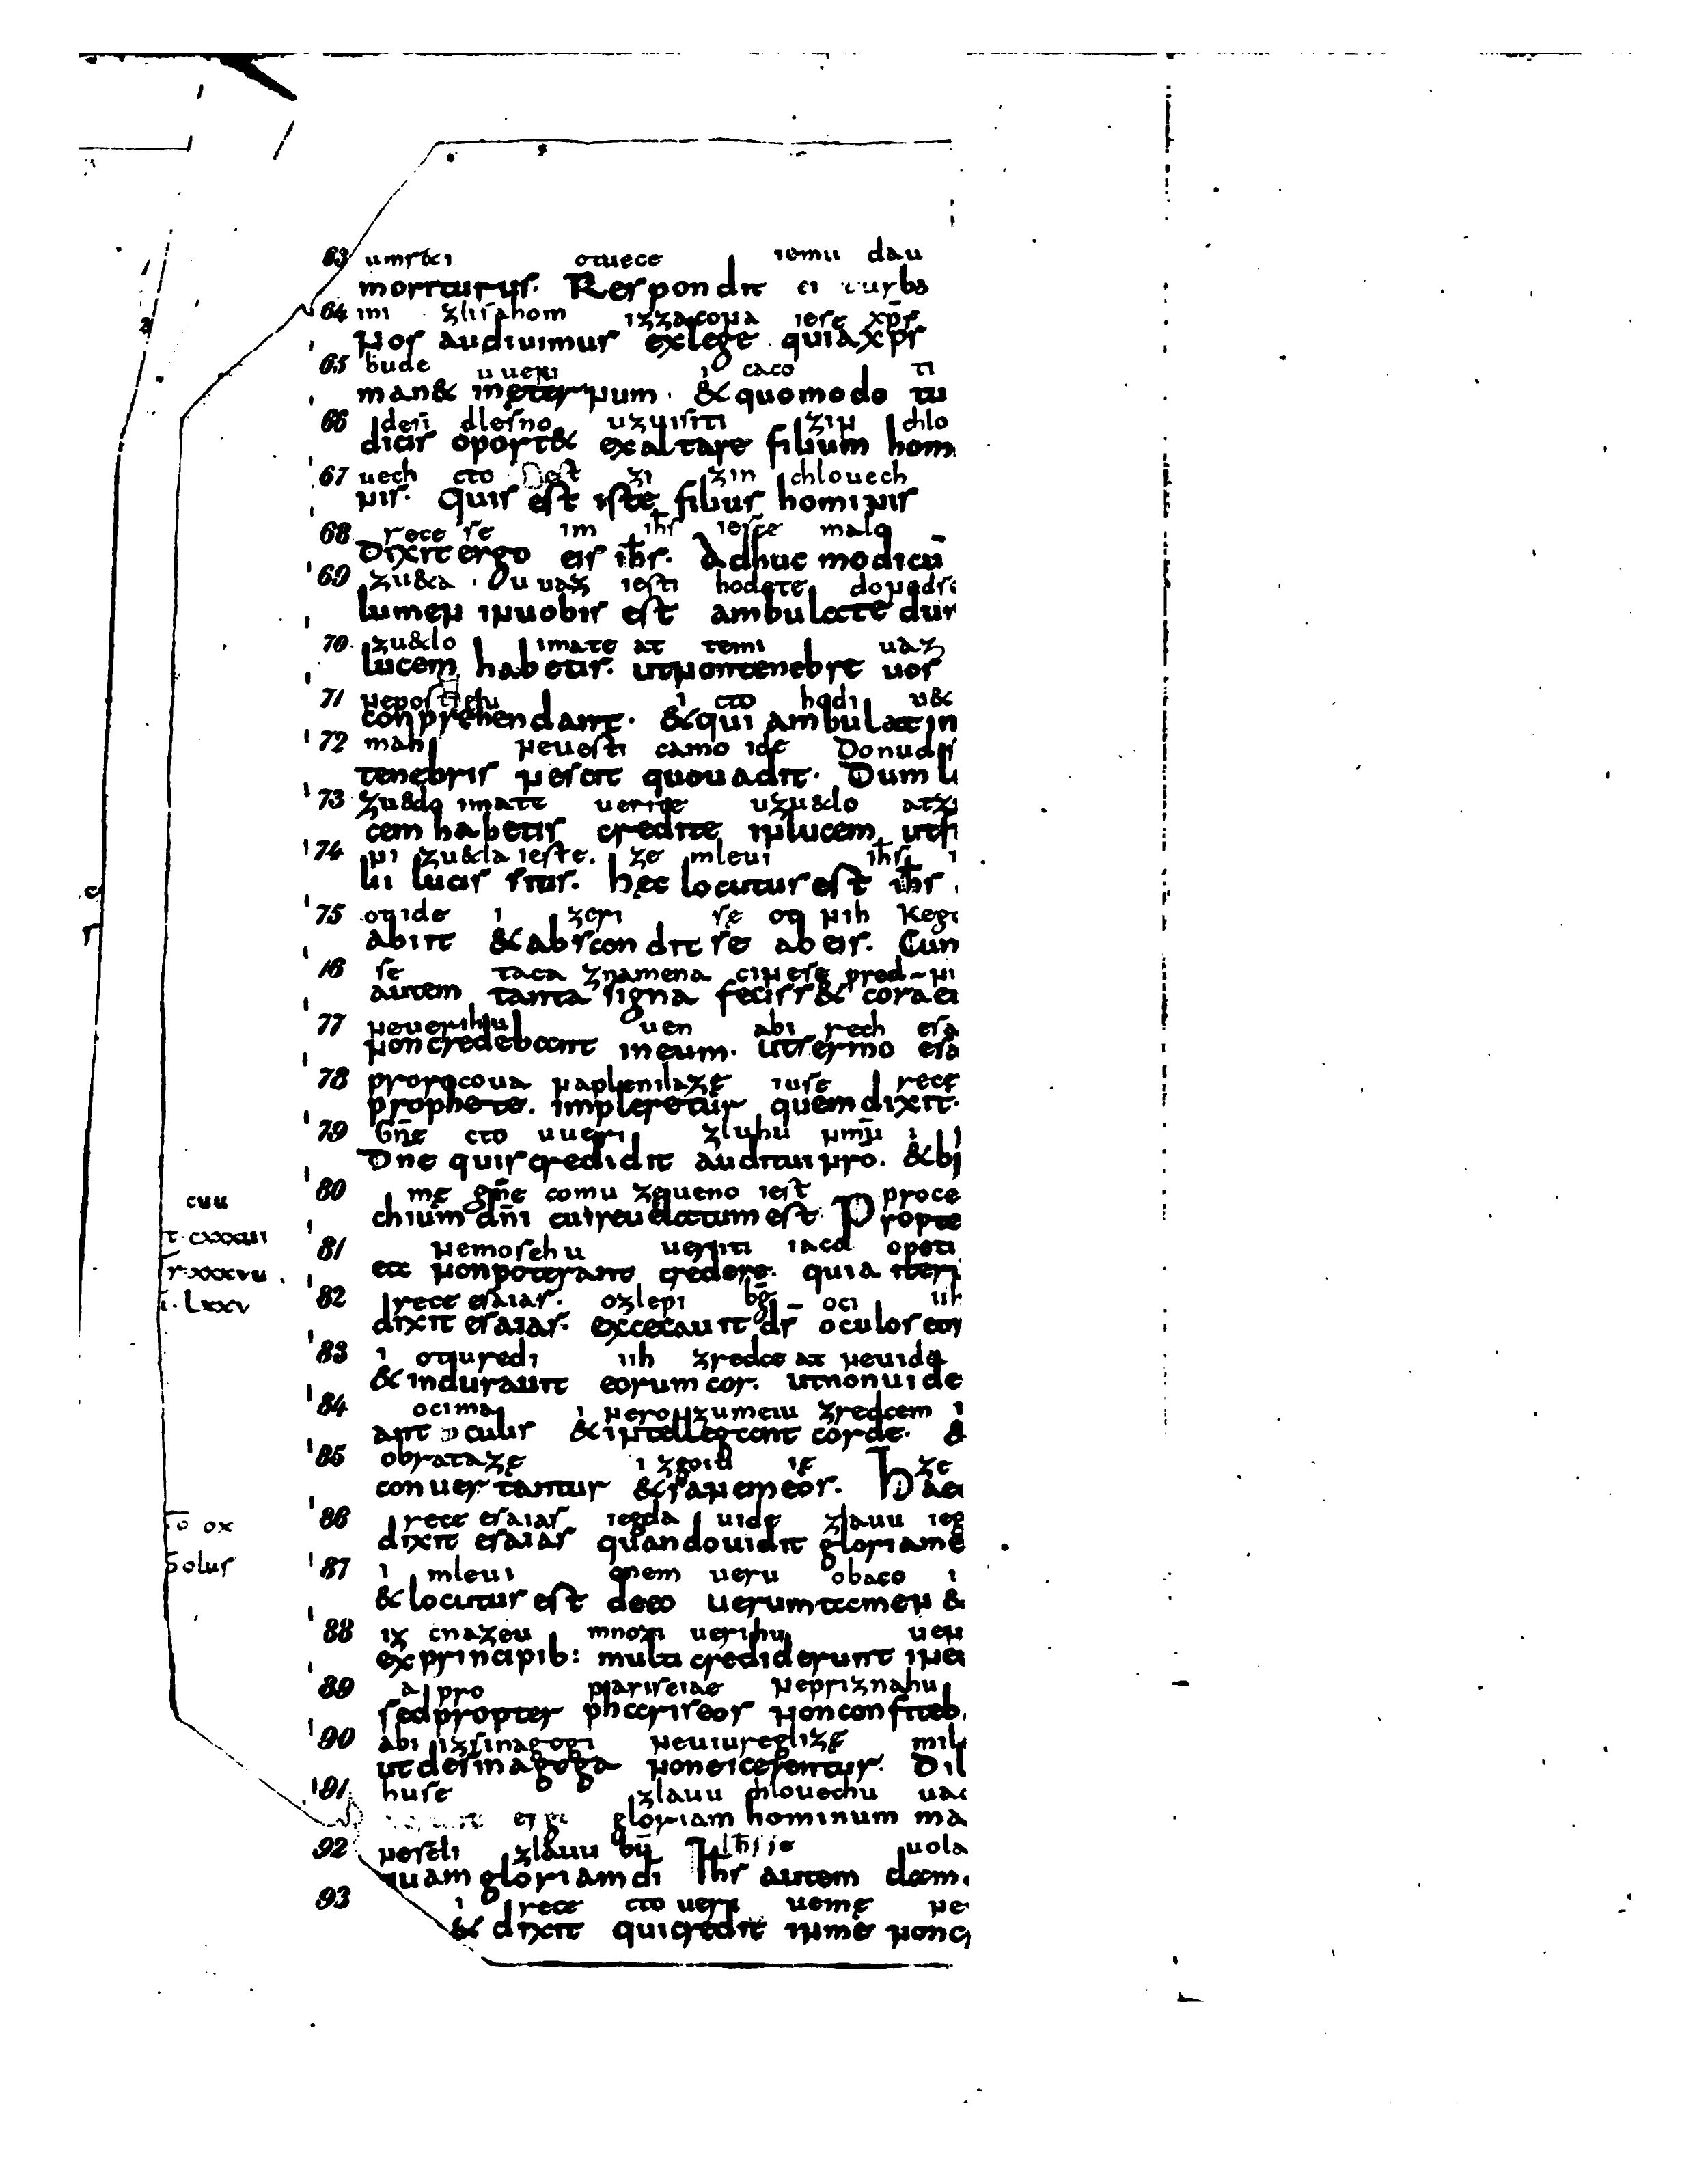 63 umrsci otuece iemu dau
moriturus. Respondit ei turba
64 mi zlisahom izzacona iese xp̄s
Nos audiuimus exlege quiaxp̄s
65 bude uueki i caco ti
man& ineternum. &quomodo tu
66 desī dlesno uzuisiti zin chlo
dicis oport& exaltare filium hom
67 uech cto iest zi zin chlouech
nis. Quis est iste filius hominis
68 rece se im ih̄s iesce malo
Dixit ergo eis ih̄s. Adhuc modicū
69 zu&a. Ou uaz iesti hodete
lumen inuobis est ambulate dum
70 zu&lo imate at temi uaz
lucem habetis. utnontenebre uos
71 i cto hodi u&
conprehendant. &qui ambulat in
72 mah neuesti camo ide Donuds
tenebris nescit quouadit. Dum lu
73 zu&do imate uerite uzu&lo atzi
cem habetis credite inlucem utfi
74 ni zu&la ieste. ze mleui ih̄s i
lii lucis sitis. hęc locutus est ih̄s
75 otide i zcri sę ot nih Kegd
abiit &abscondit se ab eis. Cum
76 se taca znamena cinese pred-ni
autem tanta signa feciss& corā ei
77 neuerihu uen abi rech esa
noncredebant ineum. utsermo esa
78 prorocoua naplenilazę iuse rece
prophete. impleretur quem dixit.
79 Gn̄e cto uueri zluhu nm̄u i
Dne quis credidit auditui nr̄o. &b
80 mę gn̄e comu zeueno iest proce
chium dn̄i cui reuelatum est Propte
81 nemosehu ueriti iaco opeti
ea nonpoterant credere. quia iteru
82 rece esaias. ozlepi bḡ oci iih
dixit esaias. excecauit ds̄ oculos eor
83 i oturedi iih zredce at neuide
&indurauit eorum cor. utnonuide
84 ocima i nerozumeiu zredcem i
ant oculis &intellegant corde. &
85 obratazę i zgoiu ię ze
conuertantur &sanem eos. Haec
86 rece esaias iegda uide zlauu ieg
dixit esaias quandouidit gloriamē
87 i mleui onem ueru obaco i
&locutus est deeo uerumtamen &
88 iz cnazeu mnozi uerihu uen
exprincipib: multi crediderunt inei
89 a pro pharireiae nepriznahu
sedpropter phariseos nonconfiteb
90 abi izsinagogi neuiureglizę mil
utdesinagoga noneicerentur. Dil
91 huse zlauu chlouechu uac
gloriam hominum ma
92 neseli zlauu bīi Ih̄s ie uola
quam gloriamdi Ihs autem clam
93 i rece cto ueri uemę ne
& dixit quicredit inme nonc
cuu
t. cxxxui
r. xxxvu
i. Lxxv
ox
Solus